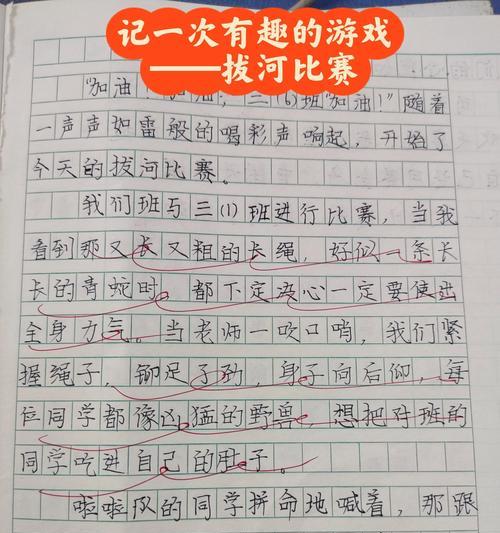 记一次有趣的游戏
——拔河比赛
"加油！加油，三(6)班"加油！"随着
一声声如雷般的喝彩声响起，开始了
今天的拔河比赛。
我们班与三(1)班进行比赛，当我
看到那又长又粗的长绳，好似一条长
长的青蛇时，都下定决心一定要使出
全身力气。当老师一吹口哨，我们紧
握绳子，铆足了劲，身子向后仰，每
位同学都像凶猛的野兽，想把对班的
同学吃进自己的肚子。
啦啦队的同学拼命地喊着，那跟